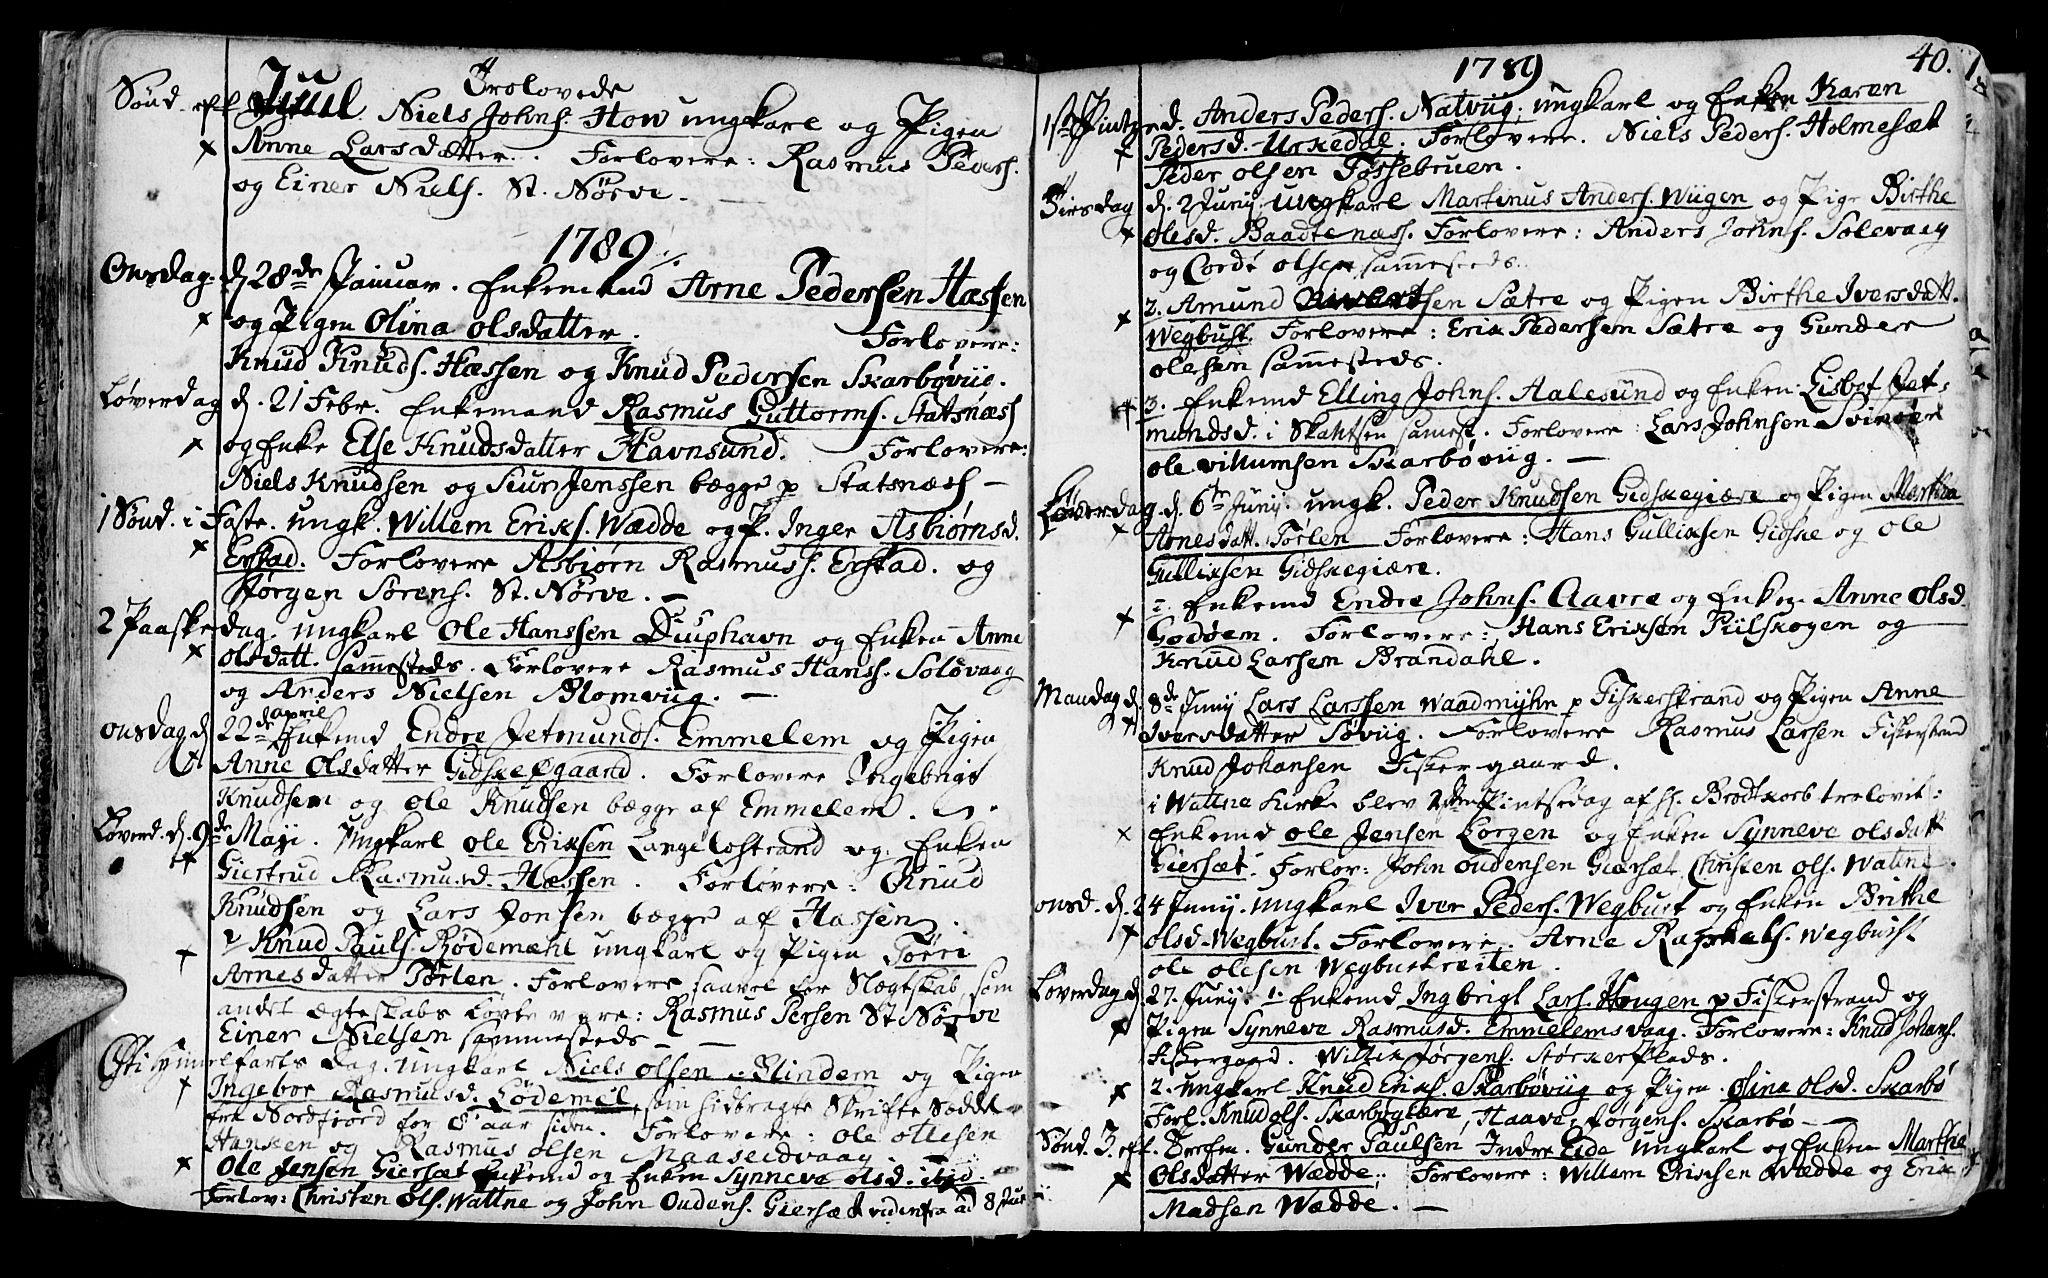 Trolovede
Sønd. eft. Juul. Niels Johns. How ungkarl og Pigen
Anne Larsdatter. Forlovere: Rasmus Peders.
og Einer Niels. St. Nørve.
1789
Onsdag d 28de Januar. Enkemand Arne Pedersen Hæssen
og Pigen Olina Olsdatter. Forlovere:
Knud Knuds. Hæssen og Knud Pedersen Skarbøviig.
Løverdag d. 21 Febr. Enkemand Rasmus Guttorms. Statsnæss
og Enke Else Knudsdatter Havnsund. Forlovere:
Niels Knudsen og Siur Jenssen bægge p Statsnæss
1 Sønd. i Faste. Ungk. Willem Eriks. Wædde og P. Inger Asbiørnsd.
Erstad. Forlovere Asbiørn Rasmuss. Erstad. og
Jørgen Sørens. St. Nørve.
2 Paaskedag. Ungkarl Ole Hanssen Diuphavn og Enken Anne
Olsdatt. sammesteds. Forlovere Rasmus Hanss. Solevaag
og Anders Nielsen Blomviig.
Onsdag d 22de April Enkemd Endre Jetmunds. Emmelem og Pigen
Anne Olsdatter Gidskeøgaard. Forlovere Ingebrigt
Knudsen og Ole Knudsen bægge af Emmelem.
Løverd. d. 9de Maji. Ungkarl Ole Eriksen Langelostrand og Enken
Giertrud Rasmusd. Hæssen. Forlovere: Knud
Knudsen og Lars Jonsen bægge af Hassen.
Knud Pauls. Rødemæhl ungkarl og Pigen Tøri
Arnesdatter Tørlen. Forlovere saavel for Slægtskab, som
andet Ægteskabs Løvte vare: Rasmus Persen St. Nørve
Einer Nielsen sammesteds
Christi Himmelfarts Dag. Ungkarl Niels Olsen Blindem og Pigen
Ingebor Rasmusd. Lødemel, som hidbragte Skrifte Sæddel
fra Nordfiord for 8 aar siden. Forlovere: Ole Ottesen
Hansken og Rasmus Olsen Maaseidvaag.
Ole Jensen Giersæt Enkemd og Enken Synneve Olsd. ibid.
Forlov: Christen Ols. Wattne og John Oudens. Giersæt vid infra ad 8 Junii
1789 40.
1ste Pintzed. Anders Peders. Natviig, ungkarl og Enken Karen
Pedersd. Urkedal. Forlovere. Niels Peders. Holmesæt
Peder Olsen Fossebruen.
Tirsdag d. 2 Junij. Ungkarl Martinus Anders. Wiigen og Pige Birthe
Olsd. Baadtenæss. Forlovere: Anders Johns. Solevaag
og Corde Olsen sammesteds.
2. Amund Sivertsen Sætre og Pigen Birthe Iversdatt.
Wegbust. Forlovere: Erik Pedersen Sætre og Gunder
Olesen sammesteds.
3. Enkemd Elling Johns. Aalesund og Enken: Lisbet Jet-
mundsd. i Skahtsen samest. Forlovere: Lars Johnsen Svinøen
Ole Villumsen Skarbøviig.
Løverdag d. 6te Junij. Ungk. Peder Knudsen Gidskegiære og Pigen Marthe
Arnesdatt. Tørlen Forlovere: Hans Gulliksen Gidske og Ole
Gulliksen Gidskegiære.
2. Enkemd Endre Johns. Aavre og Enken Anne Olsd.
Godøem. Forlovere: Hans Eriksen Piilskogen og
Knud Larsen Brandahl.
Mandag d. 8de Junij Lars Larssen Waadmyhr p Fiskerstrand og Pigen Anne
Iversdatter Søviig. Forlovere Rasmus Larsen Fiskerstrand
Knud Johansen Fiskergaard.
i Wattne Kirke blev 2den Pintsedag af Hr. Brodtkorb trolovit:
Enkemd Ole Jensen Lorgen og Enken Synneve Olsdatt
Giersæt. Forlov: John Oudensen Giersæt, Christen Ols. Wattne.
Onsd. d. 24 Junij. Ungkarl Iver Peders. Wegbust og Enken Brithe
Olsd. Wegbust. Forlovere. Arne Raskels. Wegbust
Ole Olesen Wegbustreiten.
Løverdag d. 27. Junij. 1. Enkemd Ingbrigt Lars. Hougen p Fiskerstrand og
Pigen Synneve Rasmusd. Emmelemsvaag. Forlovere: Knud Johans.
Fiskergaard. Willik Jørgens. Storkerplads.
2. Ungkarl Knud Eriks. Skarbøviig og Pigen Olina Olsd. Skarbø
Forl. Knud Ols. Skarbøgiære, Haave Jørgens. Skarbø
Sønd. 3. eft. Trefm. Gunder Paulsen Indre Eide Ungkarl og Enken Marthe
Olsdatter Wædde. Forlovere: Willem Eriksen Wædde og Erik
Madsen Wædde.